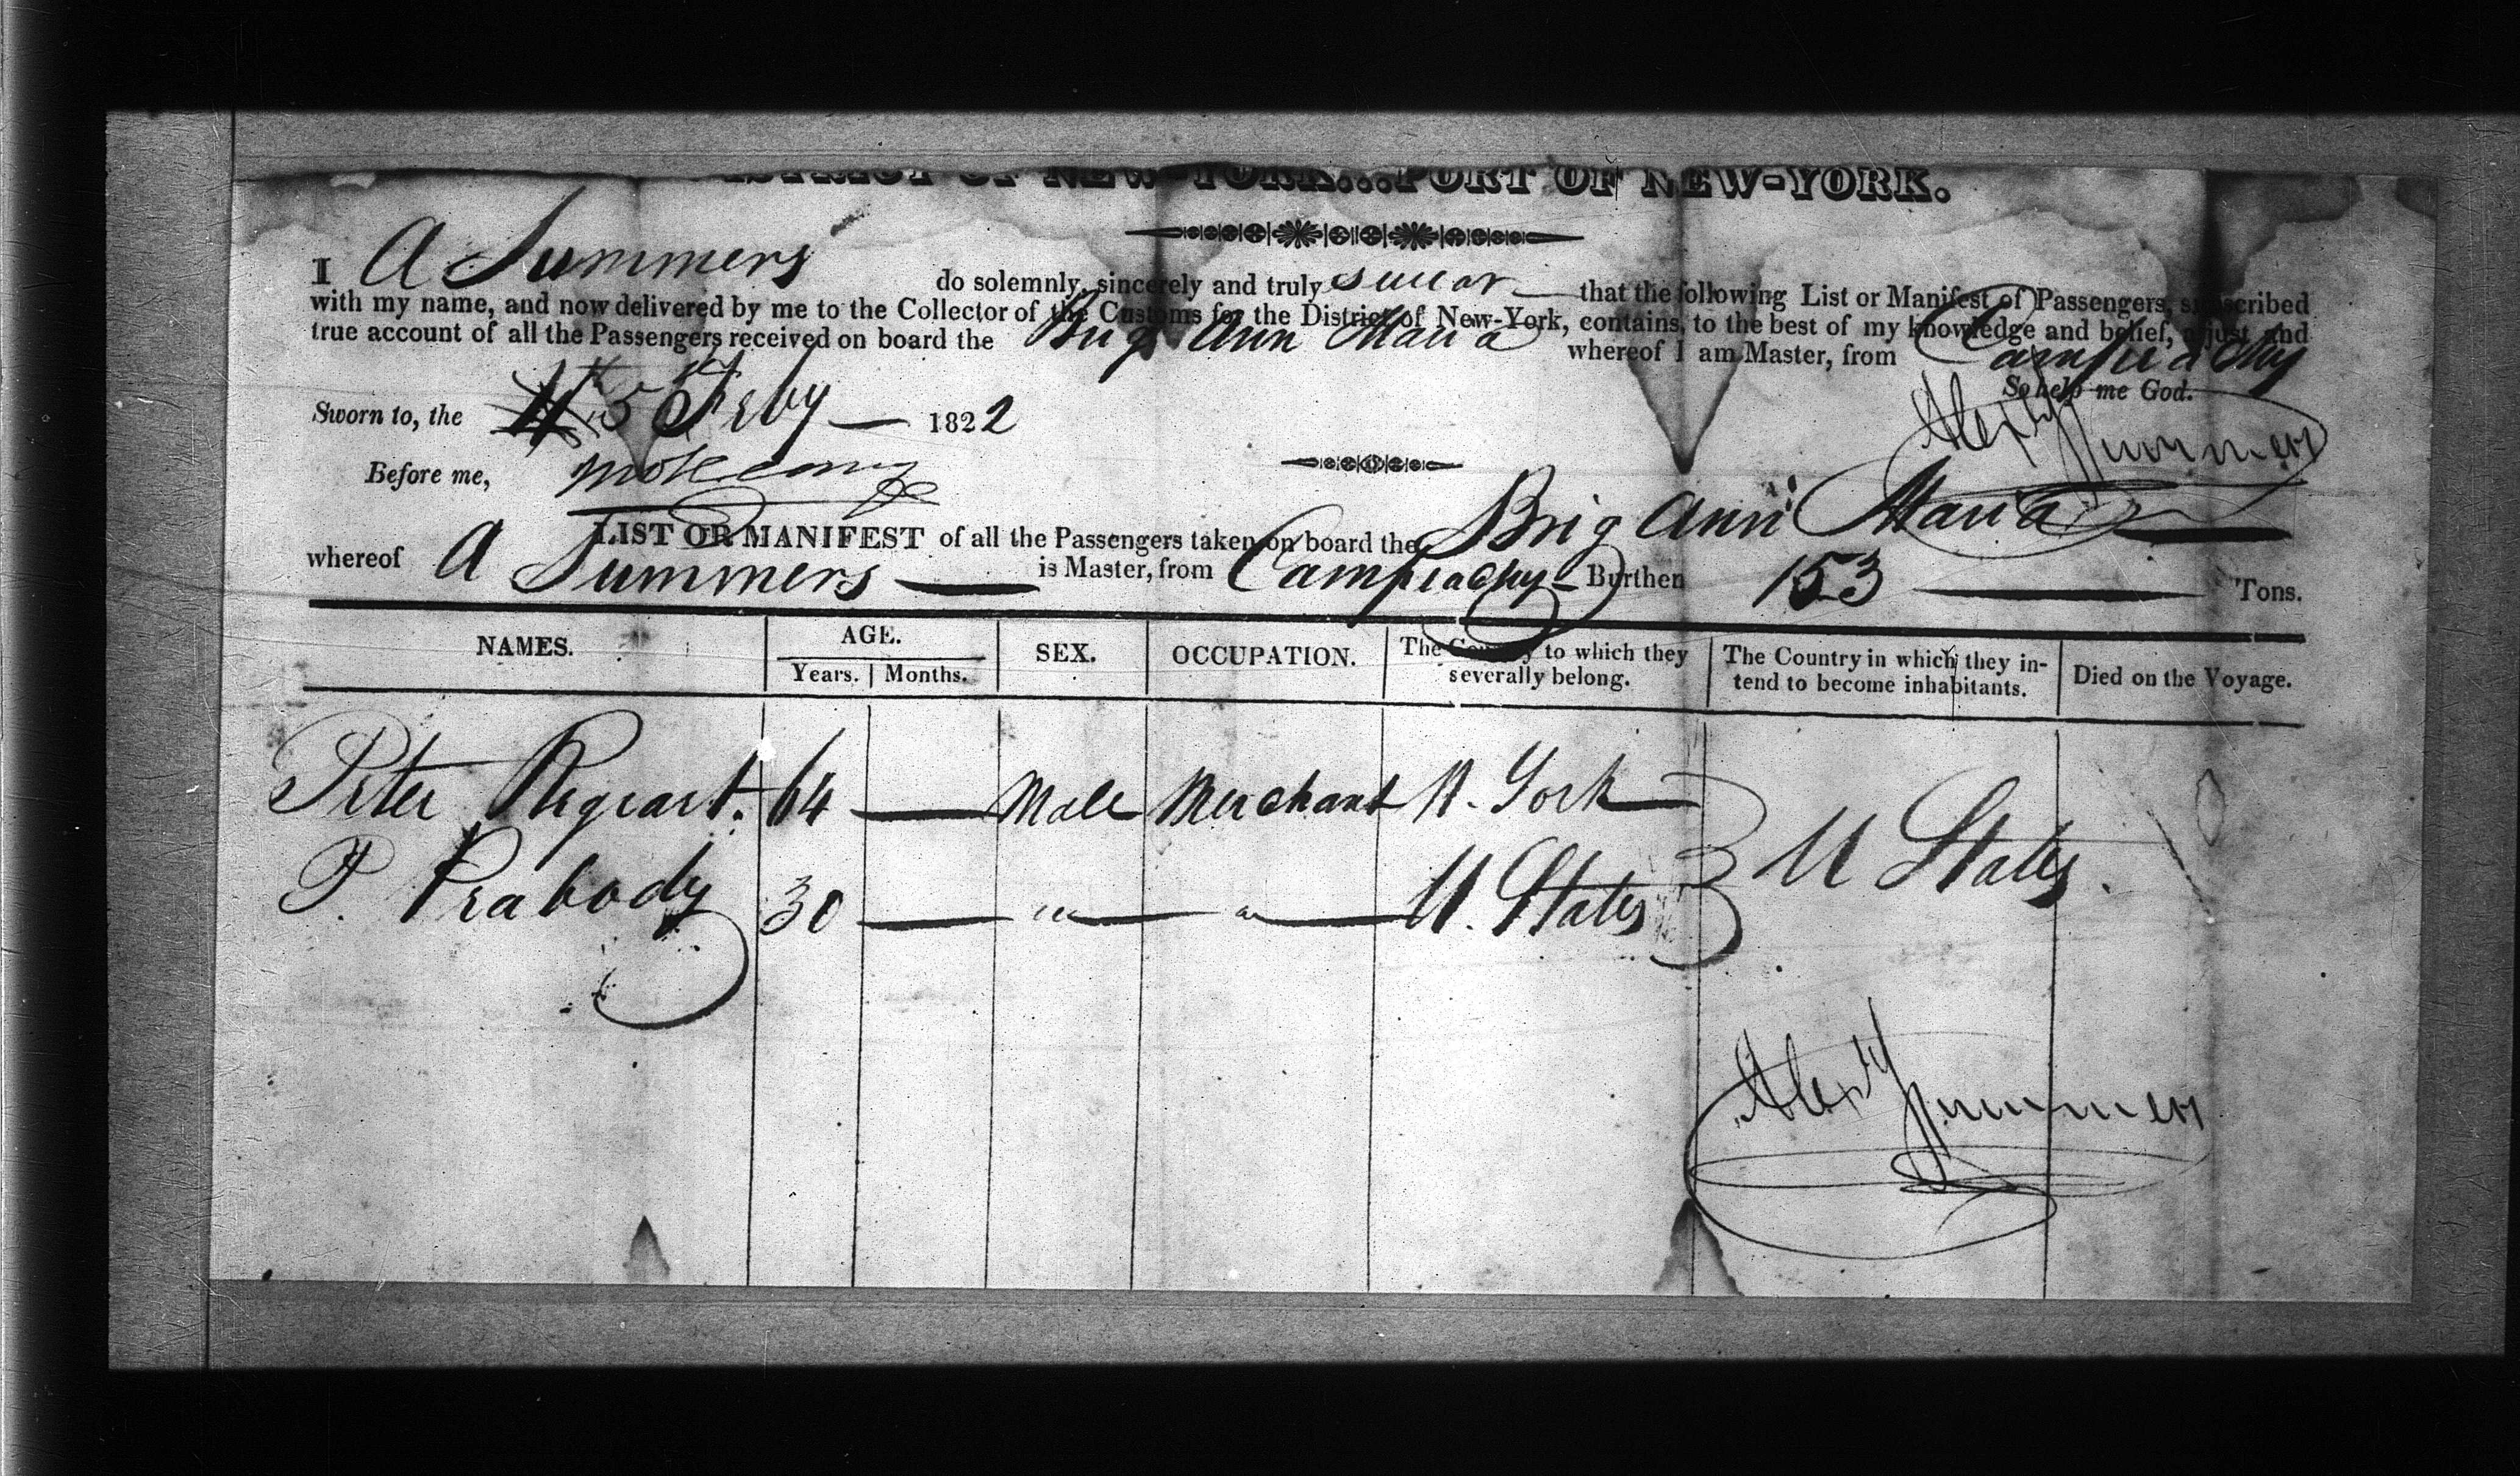 DISTRICT OF NEW-YORK...PORT OF NEW-YORK.
I A Summers do solemnly, sincerely and truly swear that the following List or Manifest of Passengers, subscribed
with my name, and now delivered by me to the Collector of the Customs for the District of New-York, contains, to the best of my knowledge and belief, a just and
true account of all the Passengers received on board the Brig Ann Maria whereof I am Master, from Campeachy
So help me God.
Sworn to, the 5th Feby 1822
Alexr Summers
Before me,
LIST OR MANIFEST of all the Passengers taken on board the Brig Ann Maria
whereof A Summers is Master, from Campeachy Burthen 153 Tons.
NAMES. AGE. SEX. OCCUPATION. The Country to which they severally belong. The Country in which they intend to become inhabitants. Died on the Voyage.
Years. Months.
Peter 64 Male Merchant N. York
U States.
P. Peabody 30 " " U. States
Alexr Summers